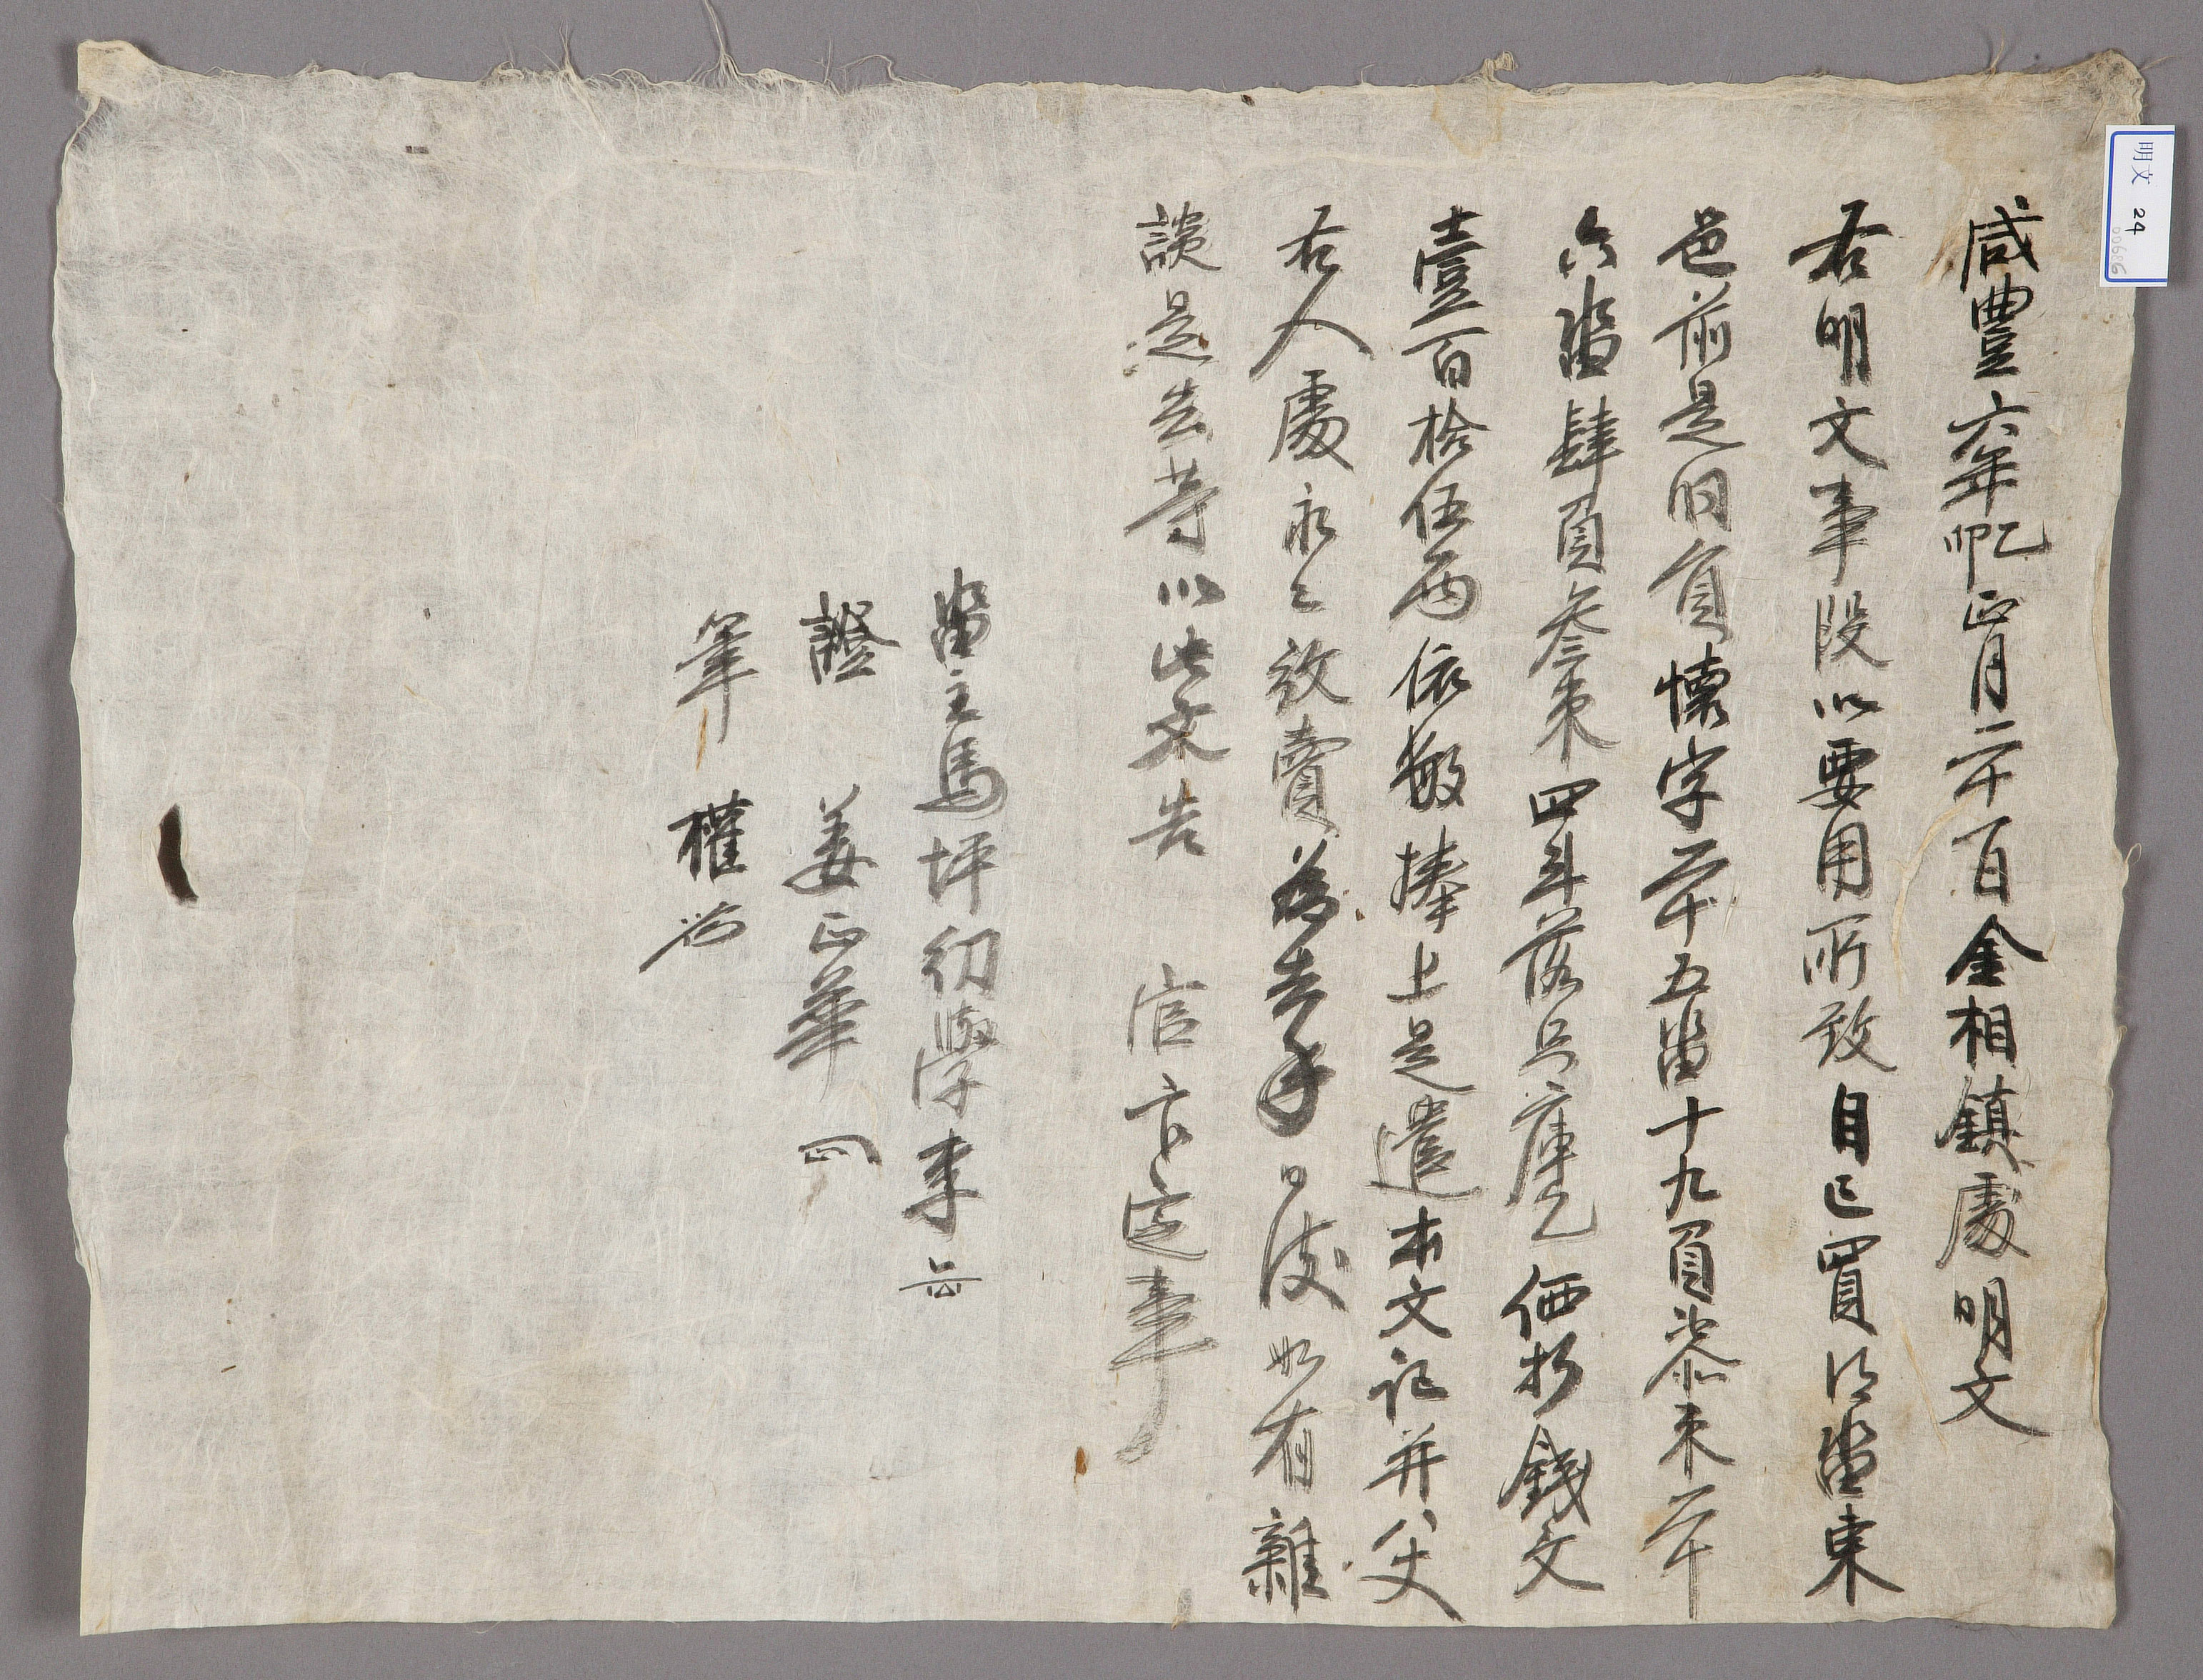 明文 24
00686
咸豊六年乙卯正月二十日金相鎭處明文
右明文事段以要用所致自己買得畓東
邑前是旧員懐字二十五畓十九負柒束二十
六畓肆負叁束四斗落只庫乙価折錢文
壹百拾伍兩依數捧上是遣本文記并以
右人處永々放賣爲去乎日後如有雜
談是去等以此文告 官卞定事
畓主馬坪幼學李
證 姜正華
筆 權